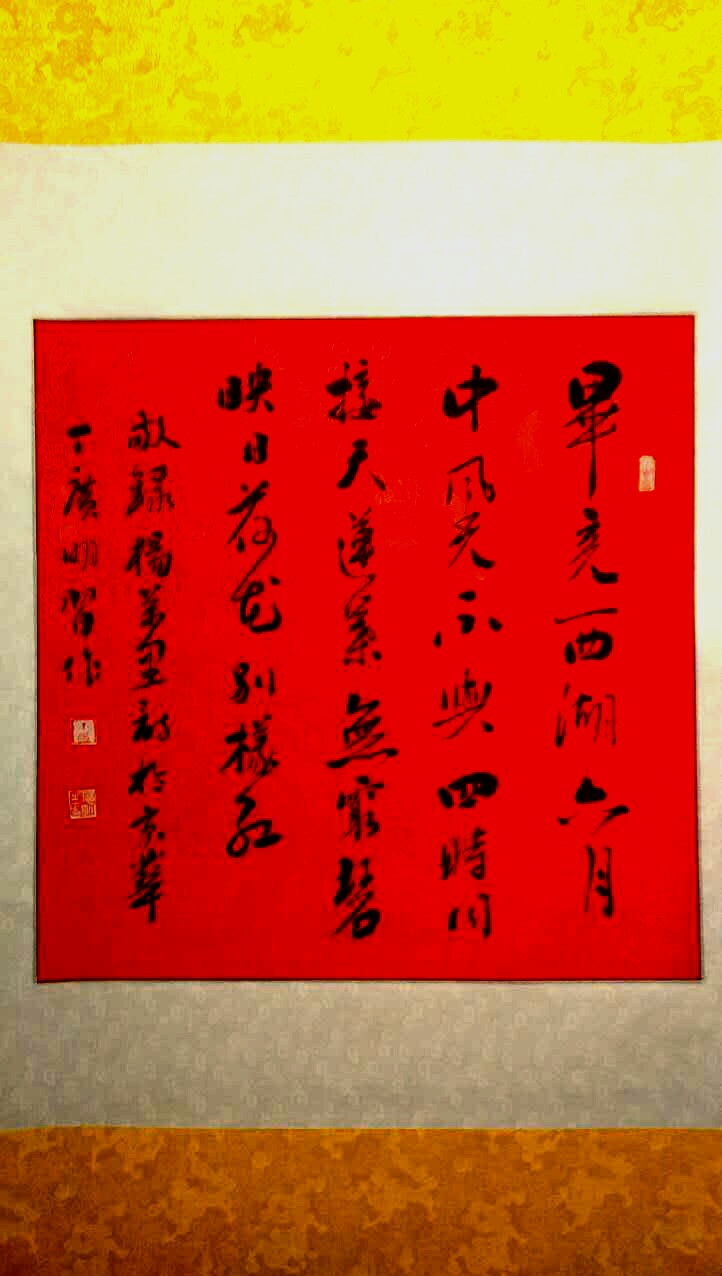 畢竟西湖六月
中風光不與四時同
接天蓮葉無窮碧
映日荷花別樣紅
敬録楊萬里詩於京華
丁廣明習作